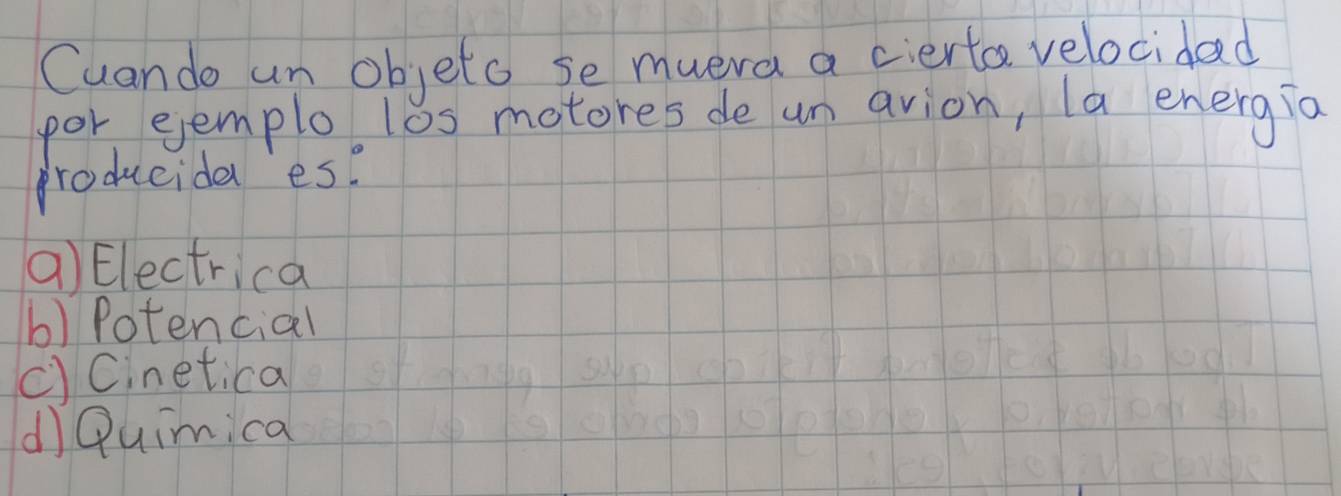 Cuando un objeto se mueva a cierta velocidad
por ejemplo los motores de un avion, la energía
producida es:
a) Electrica
b) Potencial
c) Cinetica
d) Química